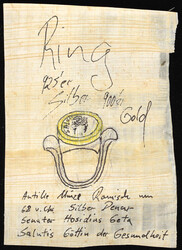 Ring
925'er
Silber 900er
Gold
Antike Münze Römisch um
68 v. Chr. Silber Denar
Senator Hosidius Geta
Salutis Göttin der Gesundheit